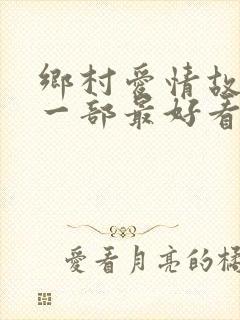 鄉村愛情故
一部最好看
愛看月亮的橘